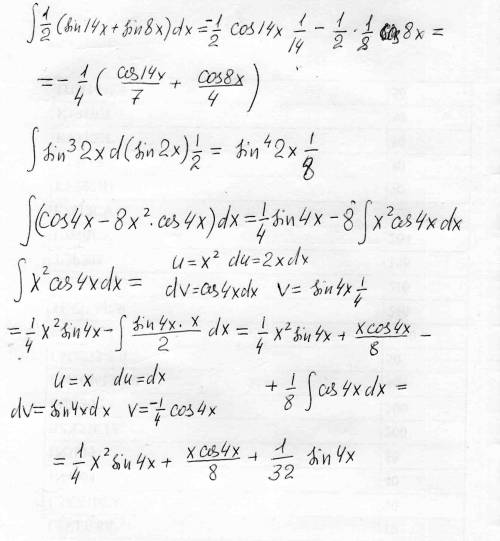 ∫ 1/2 (sin14x + sin8x)dx = -1/2 cos14x 1/14 - 1/2 · 1/8 cos 8x =
= - 1/4 ( cos14x/7 + cos8x/4 )
∫ sin³2x d(sin2x) 1/2 = sin⁴2x 1/8
∫(cos4x - 8x²·cos4x)dx = 1/4 sin4x - 8∫x²cos4xdx
∫x²cos4xdx = u = x² du = 2xdx
dv = cos4xdx v = sin4x 1/4
= 1/4 x²sin4x - ∫ sin4x·x/2 dx = 1/4 x²sin4x + xcos4x/8 -
u = x du = dx + 1/8 ∫cos4xdx =
dv = sin4xdx v = -1/4 cos4x
= 1/4 x²sin4x + xcos4x/8 + 1/32 sin4x